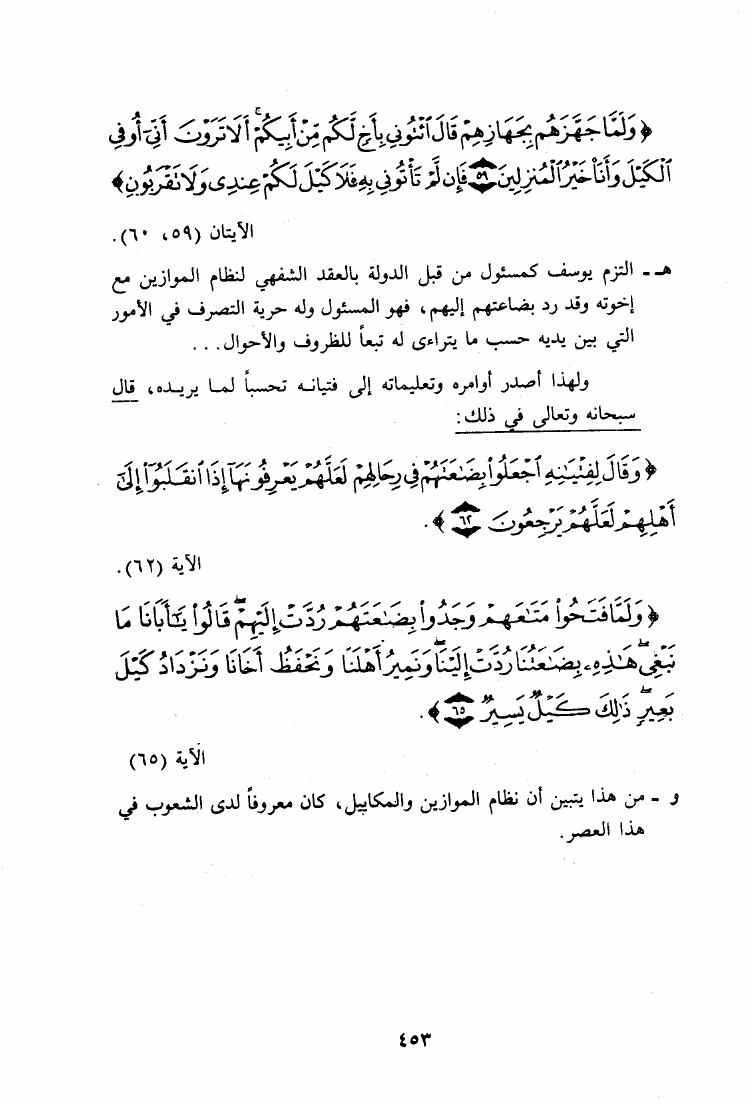 ﴿ وَلَمَّا جَهَّزَهُم بِجَهَازِهِمْ قَالَ ٱئْتُونِى بِأَخٍ لَّكُم مِّنْ أَبِيكُمْ ۚ أَلَا تَرَوْنَ أَنِّىٓ أُوفِى
ٱلْكَيْلَ وَأَنَا۠ خَيْرُ ٱلْمُنزِلِينَ ٥٩ فَإِن لَّمْ تَأْتُونِى بِهِۦ فَلَا كَيْلَ لَكُمْ عِندِى وَلَا تَقْرَبُونِ ﴾
الآيتان (٥٩، ٦٠).
هـ - التزم يوسف كمسئول من قبل الدولة بالعقد الشفهي لنظام الموازين مع
إخوته وقد رد بضاعتهم إليهم، فهو المسئول وله حرية التصرف في الأمور
التي بين يديه حسب ما يتراءى له تبعاً للظروف والأحوال...
ولهذا أصدر أوامره وتعليماته إلى فتيانه تحسباً لما يريده، قال
سبحانه وتعالى في ذلك:
﴿ وَقَالَ لِفِتْيَـٰنِهِ ٱجْعَلُوا۟ بِضَـٰعَتَهُمْ فِى رِحَالِهِمْ لَعَلَّهُمْ يَعْرِفُونَهَآ إِذَا ٱنقَلَبُوٓا۟ إِلَىٰٓ
أَهْلِهِمْ لَعَلَّهُمْ يَرْجِعُونَ ٦٢ ﴾.
الآية (٦٢).
﴿ وَلَمَّا فَتَحُوا۟ مَتَـٰعَهُمْ وَجَدُوا۟ بِضَـٰعَتَهُمْ رُدَّتْ إِلَيْهِمْ ۖ قَالُوا۟ يَـٰٓأَبَانَا مَا
نَبْغِى ۖ هَـٰذِهِۦ بِضَـٰعَتُنَا رُدَّتْ إِلَيْنَا ۖ وَنَمِيرُ أَهْلَنَا وَنَحْفَظُ أَخَانَا وَنَزْدَادُ كَيْلَ
بَعِيرٍ ۖ ذَٰلِكَ كَيْلٌ يَسِيرٌ ٦٥ ﴾.
الآية (٦٥)
و - من هذا يتبين أن نظام الموازين والمكاييل، كان معروفاً لدى الشعوب في
هذا العصر.
٤٥٣